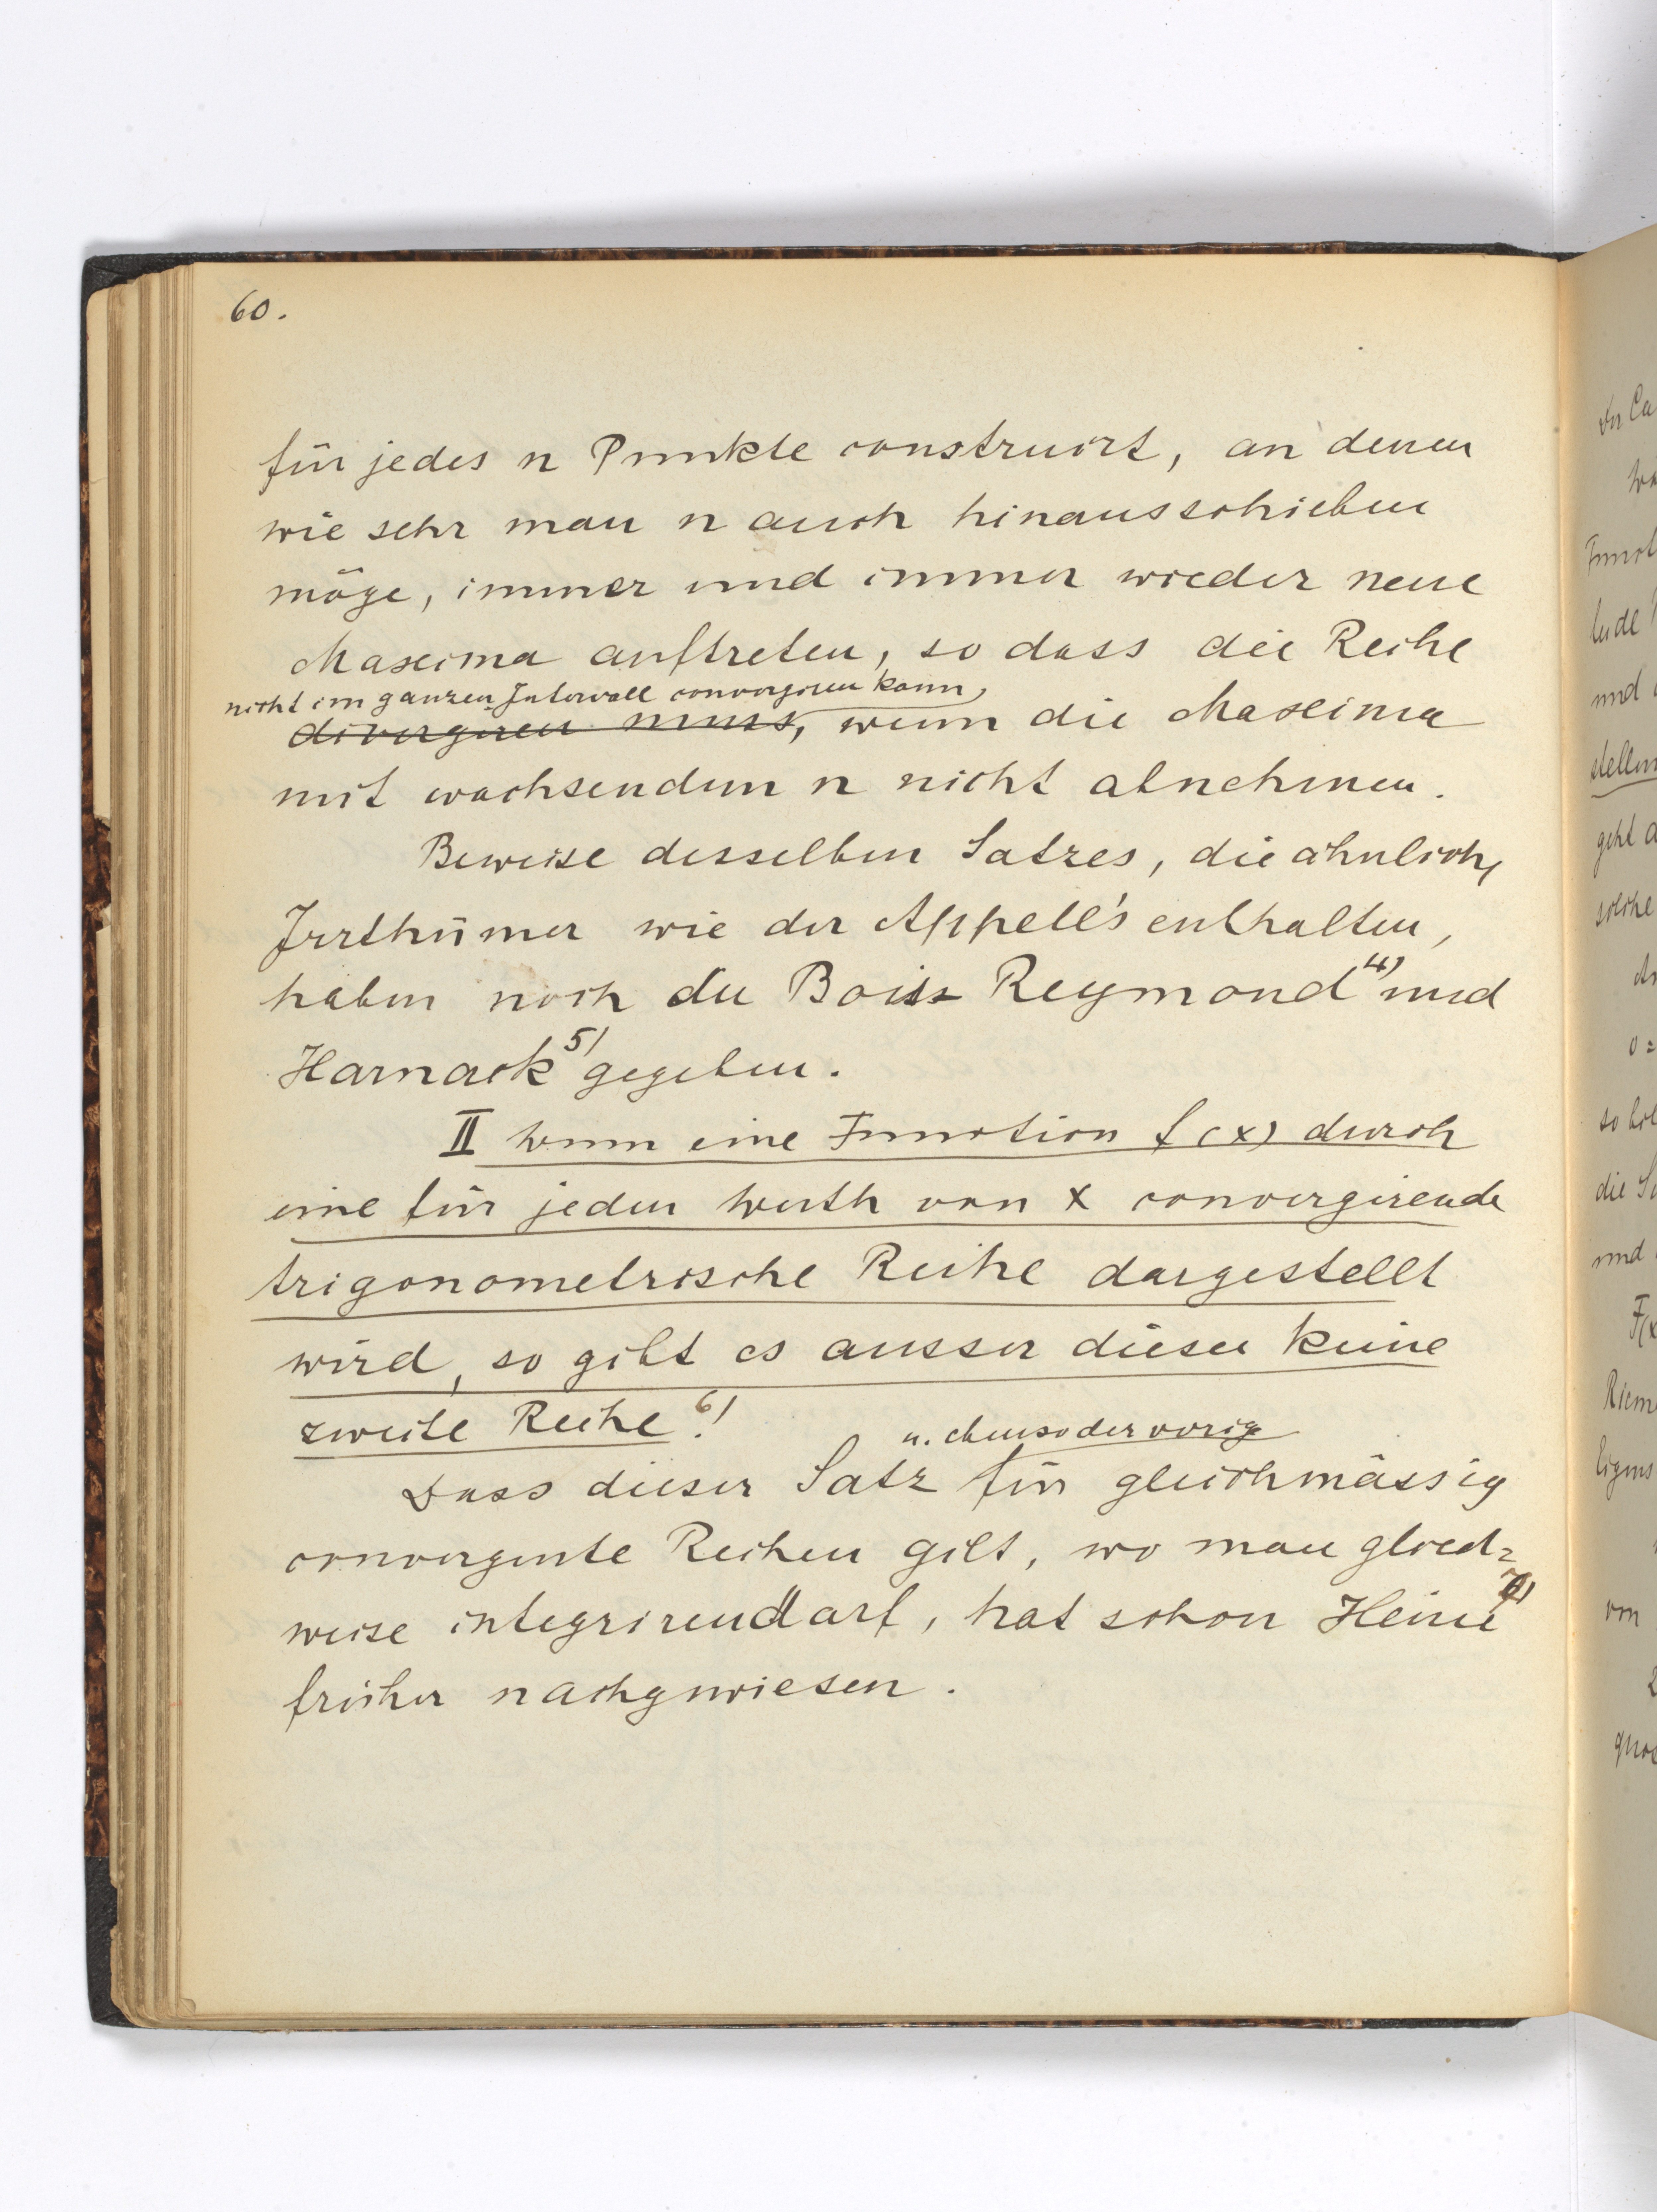 60.
für jedes n Punkte construirt, an denen
wie sehr man n auch hinausschieben
möge, immer und immer wieder neue
Maxima auftreten, so dass die Reihe
nicht im ganzen Intervall convergiren kann,
divergiren muss, wenn die Maxima
mit wachsendem n nicht abnehmen.
Beweise desselben Satzes, die ähnliche
Irrthümer wie der Appell's enthalten,
haben noch du Bois Reymond 4) und
Harnack 5) gegeben.
II Wenn eine Function f(x) durch
eine für jeden Werth von x convergirende
trigonometrische Reihe dargestellt
wird, so gibt es ausser dieser keine
zweite Reihe 6).
u. ebenso der vorige
Dass dieser Satz für gleichmässig
convergente Reihen gilt, wo man glied=
weise integriren darf, hat schon Heine 7)
früher nachgewiesen.
der Ca
Funct
und
stellun
geht d
solche
so
die
und
F(x
Riem
von